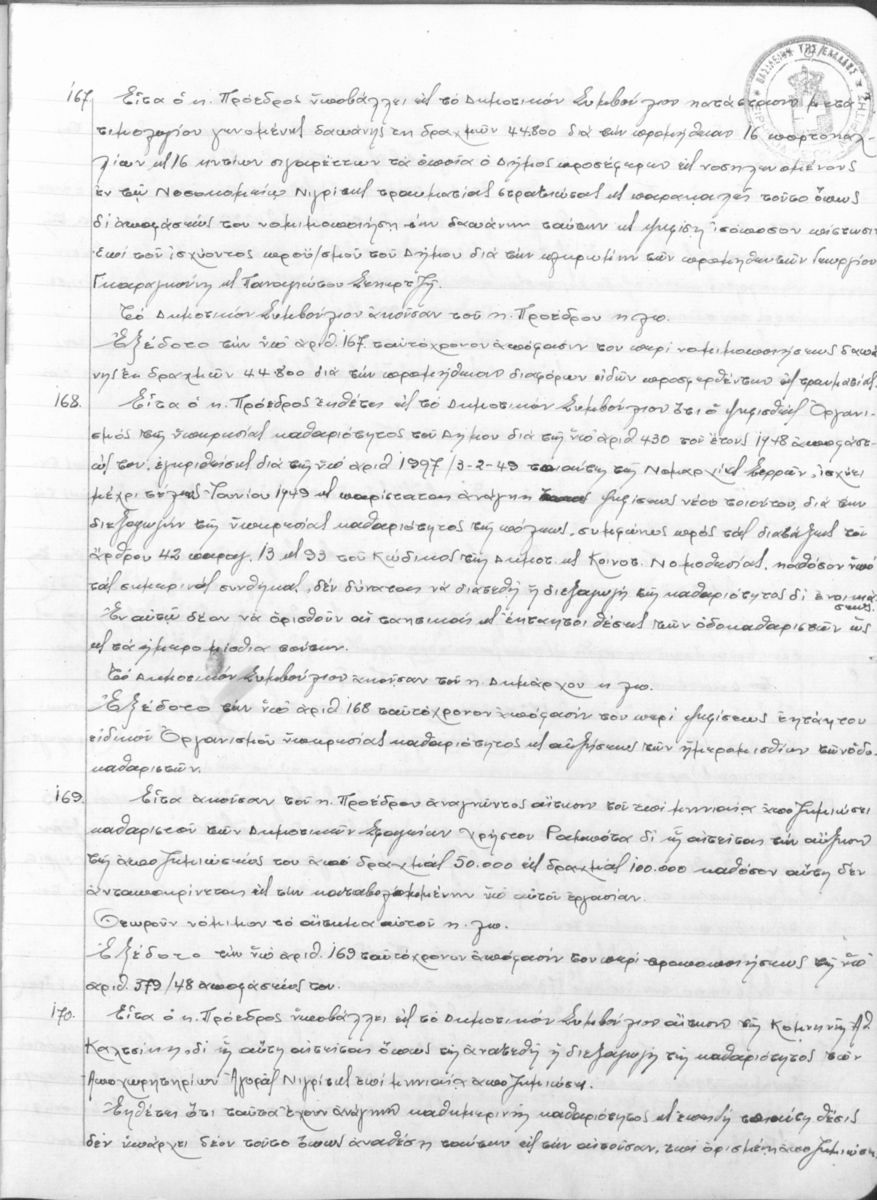 ΒΑΣΙΛΕΙΟΝ ΤΗΣ ΕΛΛΑΔΟΣ
167 Εἶτα ὁ κ. Πρόεδρος ὑποβάλλει εἰς τὸ Δημοτικόν Συμβούλιον κατάστασιν μετὰ
τιμολογίου γενομένης δαπάνης ἐκ δραχμῶν 44.800 διὰ τὴν προμήθειαν 16 πορτοκαλ-
λίων κ 16 κυτίων σιγαρέττων τὰ ὁποῖα ὁ Δῆμος προσέφερεν εἰς νοσηλευομένους
ἐν τῷ Νοσοκομείῳ Νιγρίτης τραυματίας στρατιώτας κ παρακαλεῖ τοῦτο ὅπως
δι' ἀποφάσεώς του νομιμοποιήσῃ τὴν δαπάνην ταύτην κ ψηφίσῃ ἰσόποσον πίστωσιν
ἐπὶ τοῦ ἰσχύοντος προϋ/σμοῦ τοῦ Δήμου διὰ τὴν πληρωμήν τῶν προμηθευτῶν Γεωργίου
Γκαραγκούνη κ Παναγιώτου Σεκερτζῆ.
Τὸ Δημοτικόν Συμβούλιον ἀκοῦσαν τοῦ κ. Προέδρου κ λπ.
Ἐξέδοτο τὴν ὑπ' ἀριθ. 167 ταὐτόχρονον ἀπόφασιν του περί νομιμοποιήσεως δαπά-
νης ἐκ δραχμῶν 44.800 διὰ τὴν προμήθειαν διαφόρων εἰδῶν προσφερθέντων εἰς τραυματίας.
168. Εἶτα ὁ κ. Πρόεδρος ἐκθέτει εἰς τὸ Δημοτικόν Συμβούλιον ὅτι ὁ ψηφισθείς Ὀργανι-
σμός τῆς ὑπηρεσίας καθαριότητος τοῦ Δήμου διὰ τῆς ὑπ' ἀριθ 430 τοῦ ἔτους 1948 ἀποφάσε-
ώς του, ἐγκριθείσης διὰ τῆς ὑπ' ἀριθ 1997/3-2-49 τοιαύτης τῆς Νομαρχίας Σερρῶν, ἰσχύει
μέχρι τέλους Ἰουνίου 1949 κ παρίσταται ἀνάγκη ψηφίσεως νέου τοιούτου, διὰ τὴν
διεξαγωγήν τῆς ὑπηρεσίας καθαριότητος τῆς πόλεως, συμφώνως πρὸς τὰς διατάξεις τοῦ
ἄρθρου 42 παραγ. 13 κ 93 τοῦ Κώδικος τῆς Δημοτ. κ Κοινοτ. Νομοθεσίας, καθόσον ὑπό
τὰς σημερινὰς συνθήκας, δέν δύναται νὰ διατεθῇ ἡ διεξαγωγή τῆς καθαριότητος δι' ἐνοικιά-
σεως.
Ἐν αὐτῷ δέον νὰ ὁρισθοῦν αἱ τακτικαί κ ἔκτακτοι θέσεις τῶν ὁδοκαθαριστῶν ὡς
κ τὰ ἡμερομίσθια τούτων.
Τὸ Δημοτικόν Συμβούλιον ἀκοῦσαν τοῦ κ. Δημάρχου κ λπ.
Ἐξέδοτο τὴν ὑπ' ἀριθ 168 ταὐτόχρονον ἀπόφασίν του περί ψηφίσεως ἐκτάκτου
εἰδικοῦ Ὀργανισμοῦ ὑπηρεσίας καθαριότητος κ αὐξήσεως τῶν ἡμερομισθίων τῶν ὁδο-
καθαριστῶν.
169. Εἶτα ἀκοῦσαν τοῦ κ. Προέδρου ἀναγνόντος αἴτησιν τοῦ ἐπί μηνιαίᾳ ἀποζημιώσει
καθαριστοῦ τῶν Δημοτικῶν Σφαγείων Χρήστου Ραμπότα δι' ἧς αἰτεῖται τὴν αὔξησιν
τῆς ἀποζημιώσεώς του ἀπό δραχμάς 50.000 εἰς δραχμάς 100.000 καθόσον αὕτη δέν
ἀνταποκρίνεται εἰς τὴν καταβαλλομένην ὑπ' αὐτοῦ ἐργασίαν.
Θεωροῦν νόμιμον τὸ αἴτημα αὐτοῦ κ. λπ.
Ἐξέδοτο τὴν ὑπ' ἀριθ. 169 ταὐτόχρονον ἀπόφασίν του περί τροποποιήσεως τῆς ὑπ'
ἀριθ. 579/48 ἀποφάσεώς του.
170. Εἶτα ὁ κ. Πρόεδρος ὑποβάλλει εἰς τὸ Δημοτικόν Συμβούλιον αἴτησιν τῆς Κομνηνῆς Ἀθ.
Καλτσίκη, δι' ἧς αὕτη αἰτεῖται ὅπως τῇ ἀνατεθῇ ἡ διεξαγωγή τῆς καθαριότητος τῶν
Ἀποχωρητηρίων Ἀγορᾶς Νιγρίτης ἐπί μηνιαίᾳ ἀποζημιώσει.
Ἐκθέτει ὅτι ταῦτα ἔχουν ἀνάγκην καθημερινῆς καθαριότητος κ ἐπειδή τοιαύτη θέσις
δέν ὑπάρχει δέον τοῦτο ὅπως ἀναθέσῃ ταύτην εἰς τὴν αἰτοῦσαν, ἐπί ὁρισμένῃ ἀποζημιώσει